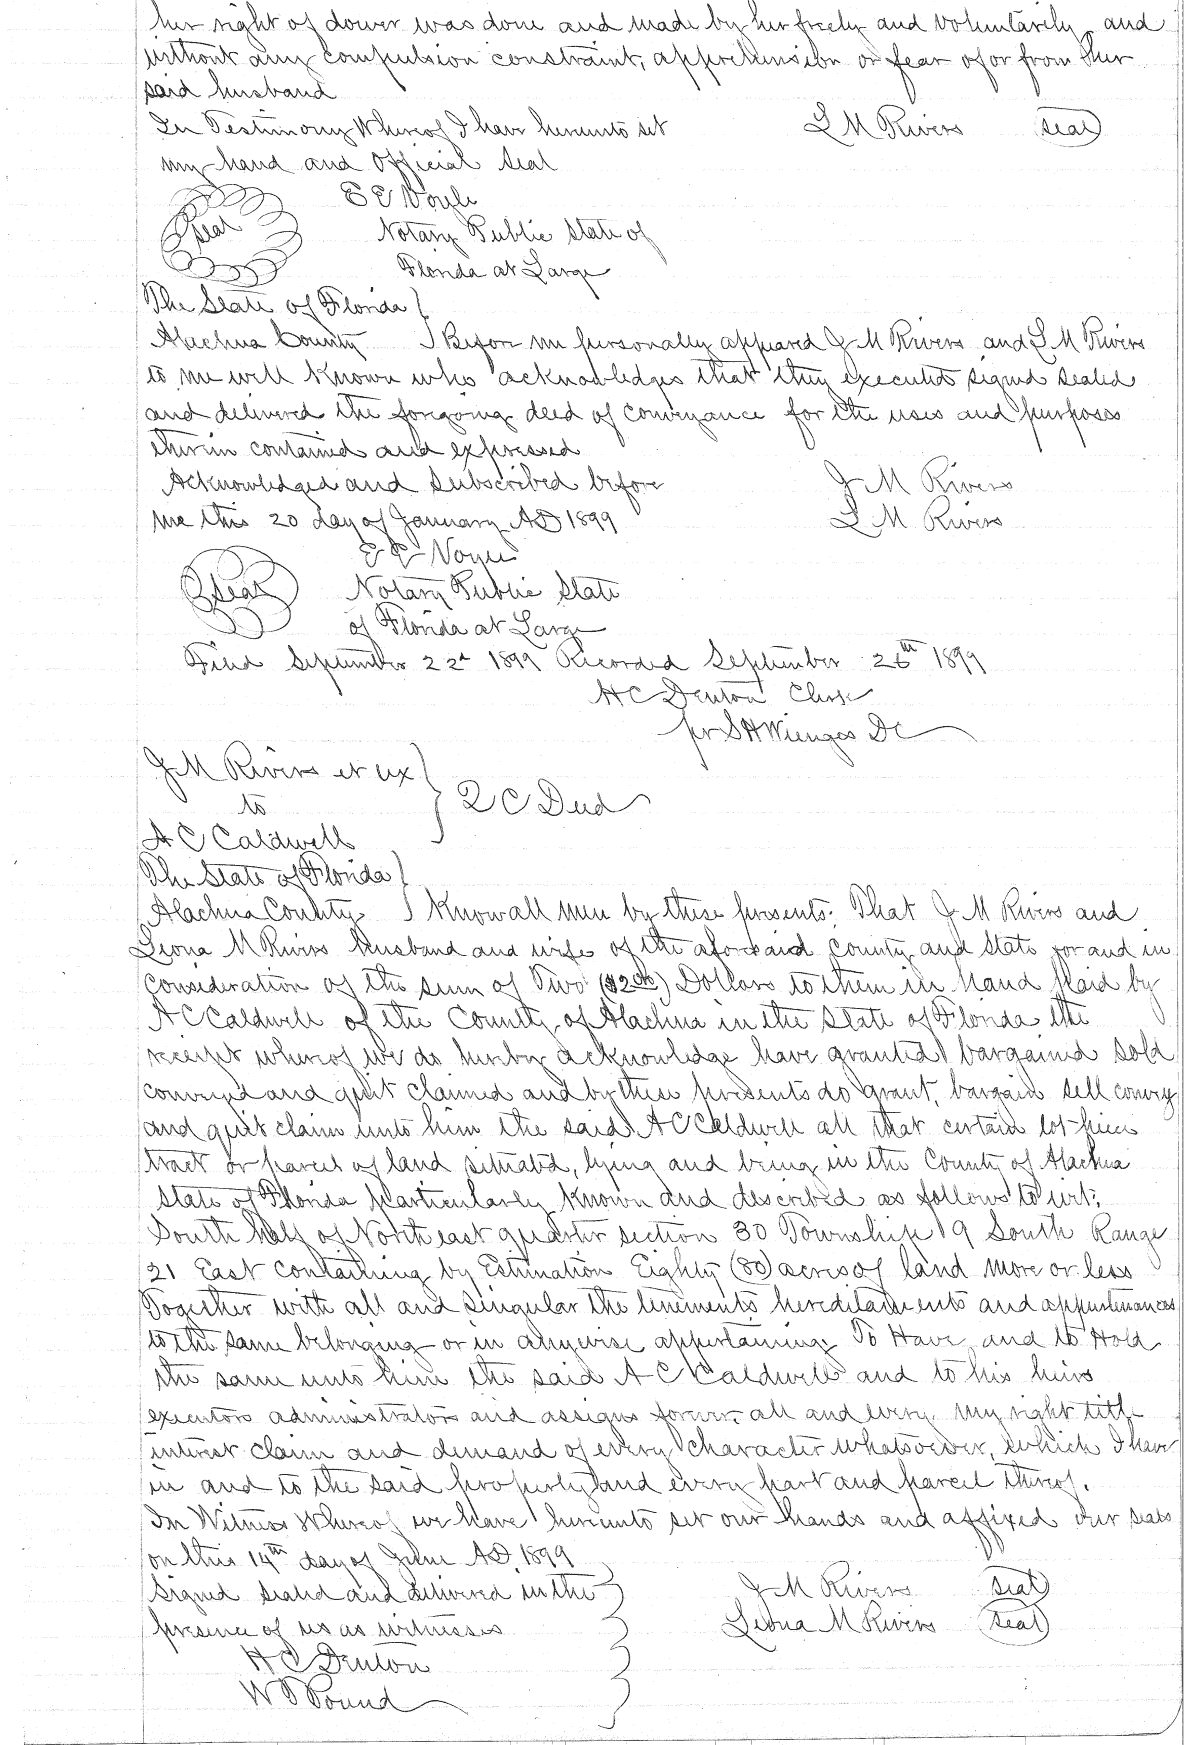 her right of dower was done and made by her freely and voluntarily and
without any compulsion constraint, apprehension or fear of or from her
said husband
In Testimony Whereof I have hereunto set L M Rivers Seal
my hand and Official Seal
E E Voyle
Seal
Notary Public State of
Florida at Large
The State of Florida }
Alachua County } Before me personally appeared J M Rivers and L M Rivers
to me well known who acknowledges that they executed signed sealed
and delivered the forgoing deed of conveyance for the uses and purposes
therein contained and expressed
Acknowledged and Subscribed before J M Rivers
me this 20 day of January AD 1899 L M Rivers
E E Voyle
Seal Notary Public State
of Florida at Large
Filed September 22d 1899 Recorded September 26th 1899
H C Denton Clerk
pr S H Wienges DC
J M Rivers et ux }
to } Q C Deed
A C Caldwell
The State of Florida }
Alachua County } Know all Men by these presents: That J M Rivers and
Leona M Rivers husband and wife of the aforesaid County and State for and in
Consideration of the sum of Two ($2.00) Dollars to them in hand Paid by
A C Caldwell of the County of Alachua in the State of Florida the
receipt whereof we do hereby acknowledge have granted bargained sold
conveyed and quit claimed and by these presents do grant, bargain sell convey
and quit claim unto him the said A C Caldwell all that certain lot piece
tract or parcel of land situated, lying and being in the County of Alachua
State of Florida particularly known and described as follows to wit:
South half of North east quarter section 30 Township 9 South Range
21 East containing by Estimation Eighty (80) acres of land more or less
Together with all and singular the tenements hereditaments and appurtenances
to the same belonging or in anywise appertaining To Have and to Hold
the same unto him the said A C Caldwell and to his heirs
executors administrators and assigns forever, all and every my right title
interest claim and demand of every character whatsoever, which I have
in and to the said property and every part and parcel thereof.
In Witness Whereof we have hereunto set our hands and affixed our seals
on this 14th day of June AD 1899
Signed sealed and delivered in the J M Rivers Seal
presence of us as witnesses Leona M Rivers Seal
H C Denton
W Pound